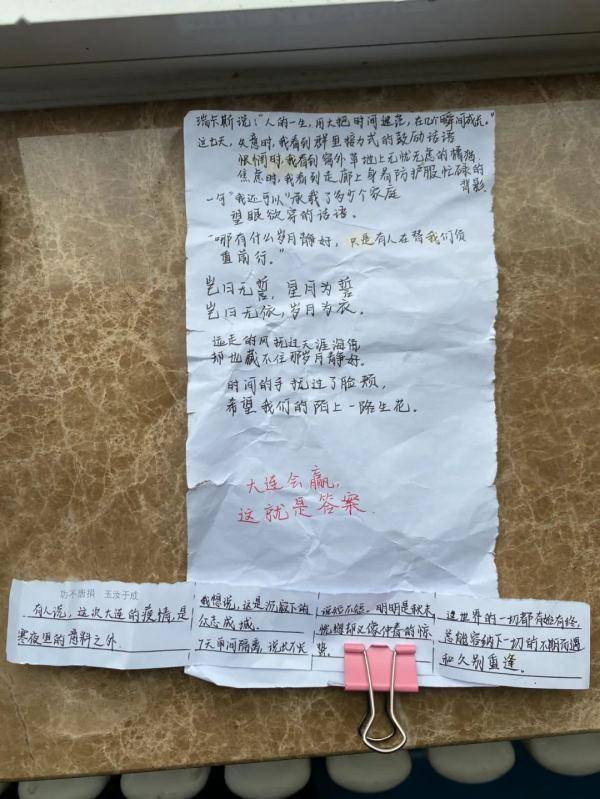 瑞尔斯说："人的一生，用大把时间迷茫，在几个瞬间成长。"
这七天，失意时，我看到群里接力式的鼓励话语
惆怅时，我看到窗外草地上无忧无虑的橘猫
焦虑时，我看到走廊上身着防护服忙碌的
背影
一句"我还可以"承载了多少个家庭
望眼欲穿的话语。
"哪有什么岁月静好，只是有人在替我们负
重前行。"
岂曰无誓，星月为誓
岂曰无依，岁月为衣。
远走的风抚过天涯海角
却也藏不住那岁月静好。
时间的手抚过了脸颊，
希望我们的陌上一路生花。
大连会赢，
这就是答案
功不唐捐 玉汝于成
有人说，这次大连的疫情，是
寒夜里的意料之外
我想说，这是沉寂下的
众志成城。
7天单间隔离，说长不长
说短不短。明明是秋末
恍惚却又像仲春的惊
蛰。
这世界的一切都有始有终
总能容纳下一切的不期而遇
和久别重逢。